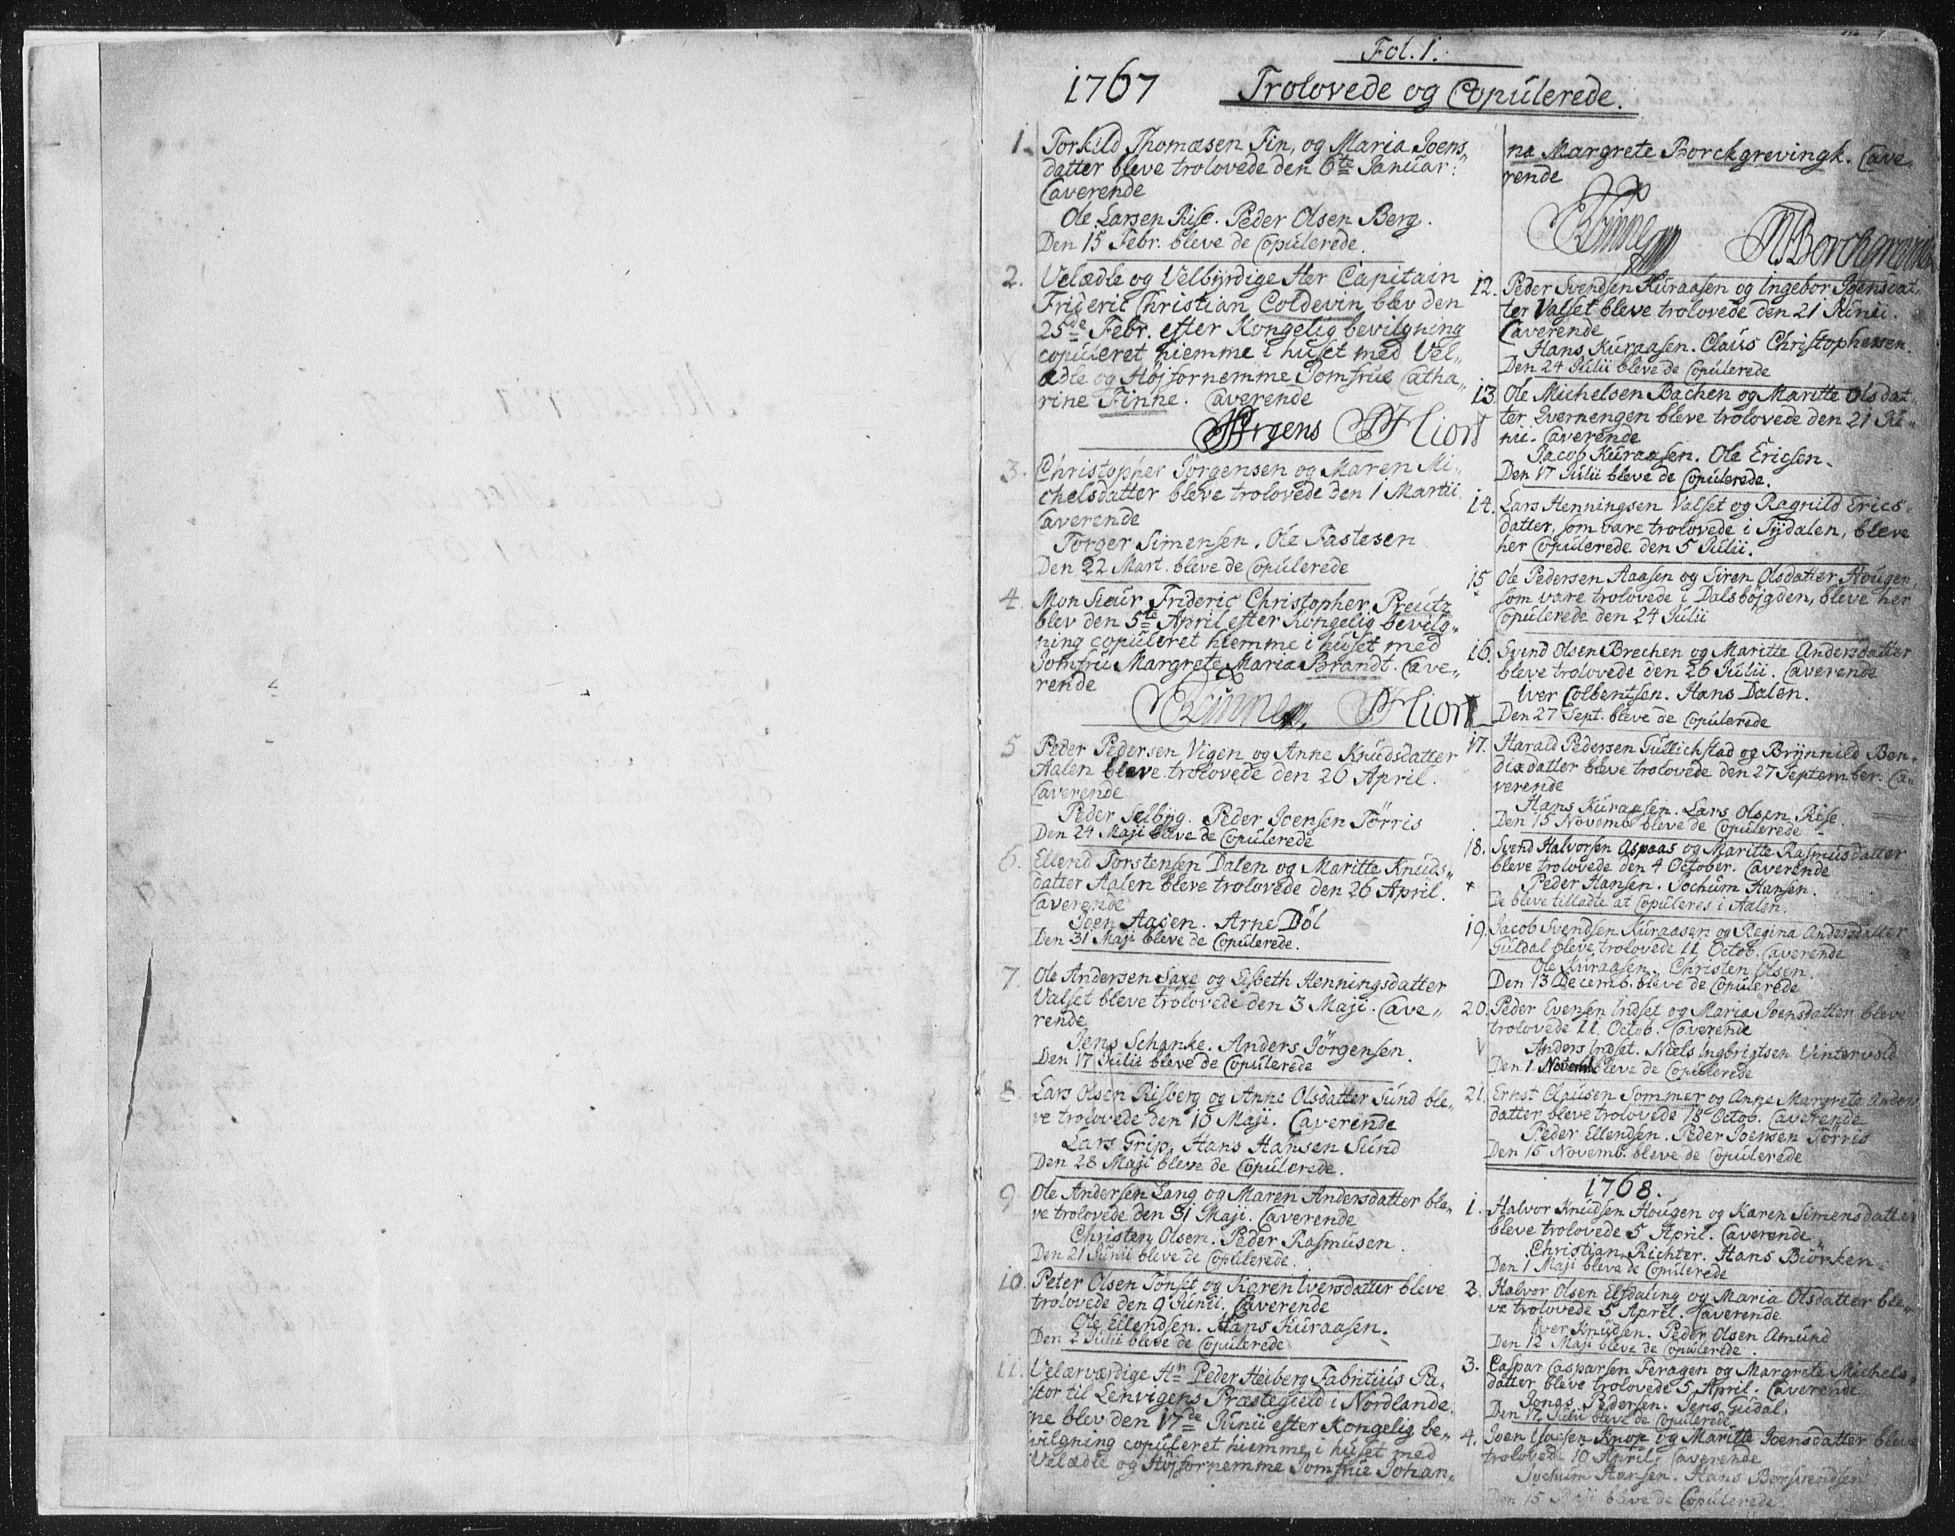 Fol. 1.
1767 Trolovede og Copülerede.
1. Torkild Thomæsen Fin, og Maria Joens„
datter bleve trolovede den 6te Januar:
Caverende
Ole Larsen Rise. Peder Olsen Berg.
Den 15 Febr. bleve de Copülerede.
2. Velædle og Velbÿrdige Her Capitain
Frideric Christian Coldevin blev den
25de Febr. efter Kongelig bevilgning
copüleret hiemme i hüset med Vel„
ædle og Højfornemme Jomfrüe Catha„
rine Finne. Caverende
JIrgens PHiort
3. Christopher Jörgensen og Maren Mi„
chelsdatter bleve trolovede den 1 Martii
Caverende
Torger Simensen. Ole Fastesen
Den 22 Mart. bleve de Copülerede
4. Monsieur Frideric Christopher Preütz
blev den 5te April efter Kongelig bevilg„
ning copüleret hiemme i hüset med
Jomfrü Margrete Maria Brandt. Cave„
rende
Finne PHiort
5. Peder Pedersen Vigen og Anne Knüdsdatter
Aalen bleve trolovede den 26 April.
Caverende
Peder Selbÿg. Peder Joensen Törris
Den 24 Maji bleve de Copülerede
6. Ellend Torstensen Dalen og Maritte Knüds„
datter Aalen bleve trolovede den 26 April.
Caverende
Joen Aasen. Arne Döl
Den 31 Maji bleve de Copülerede.
7. Ole Andersen Saxe og Lisbeth Henningsdatter
Valset bleve trolovede den 3 Maji. Cave„
rende
Jens Schanke. Anders Jörgensen.
Den 17 Jülii bleve de Copülerede
8. Lars Olsen Risberg og Anne Olsdatter Sünd ble„
ve trolovede den 10 Maji. Caverende
Lars Grip. Hans Hansen Sünd
Den 28 Maji bleve de Copülerede.
9. Ole Andersen Lang og Maren Andersdatter ble„
ve trolovede den 31 Maji. Caverende
Christen Olsen. Peder Rasmüsen.
Den 21 Jünii bleve de Copülerede.
10. Peter Olsen Tönset og Karen Iversdatter bleve
trolovede den 9 Jünii. Caverende
Ole Ellendsen. Hans Küraasen.
Den 2 Jülii bleve de Copülerede
11. Velærværdige Hn Peder Heiberg Fabritiüs Pa„
stor til Lenvigens Præstegield i Nordlande„
ne blev den 17de Jünii efter Kongelig be„
vilgning copüleret hiemme i hüset med
Velædle og Højfornemme Jomfrüe Johan„
na Margrete Borckgrevingk. Cave„
rende
Finne Borchgrevink
12. Peder Svendsen Küraasen og Ingebor Joensdat„
ter Valset bleve trolovede den 21 Jünii.
Caverende
Hans Küraasen. Claüs Christophersen.
Den 24 Jülii bleve de Copülerede
13. Ole Michelsen Bachen og Maritte Olsdat„
ter Evernengen bleve trolovede den 21 Jü„
nii. Caverende
Jacob Küraasen. Ole Ericsen.
Den 17 Jülii bleve de Copülerede.
14. Lars Henningsen Valset og Ragnild Erics„
datter, som vare trolovede i Tÿdalen, bleve
her Copülerede den 5 Jülii.
15. Ole Pedersen Aaasen og Siren Olsdatter Hougen,
som vare trolovede i Dalsbøjgden, bleve her
Copülerede den 24 Jülii
16. Svend Olsen Brechen og Maritte Andersdatter
bleve trolovede den 26 Jülii. Caverende
Iver Colbentsen. Hans Dalen.
Den 27 Sept. bleve de Copülerede
17. Harald Pedersen Güllichstad og Brÿnnild Ben„
dixdatter bleve trolovede den 27 September. Ca„
verende
Hans Küraasen. Lars Olsen Rise.
Den 15 Novemb. bleve de Copülerede
18. Svend Halvorsen Aspaas og Maritte Rasmusdatter
bleve trolovede den 4 October. Caverende
Peder Hansen. Jochüm Hansen.
De bleve tilladte at Copüleres i Aalen.
19. Jacob Svendsen Küraasen og Regina Andersdatter
Güldal bleve trolovede 11 Octob. Caverende
Ole Küraasen. Christen Olsen.
Den 13 Decemb. bleve de Copülerede
20. Peder Evensen Indset og Maria Joensdatter bleve
trolovede 11 Octob. Caverende
Anders Indset. Niels Ingbrigtsen Vintervold
Den 1 Novemb. bleve de Copülerede
21. Ernst Claüsen Sommer og Anne Margrete Anders
datter bleve trolovede 18 Octob. Caverende
Peder Ellendsen. Peder Joensen Törris
Den 15 Novemb. bleve de Copülerede
1768.
1. Halvor Knüdsen Hougen og Karen Simensdatter
bleve trolovede 5 April. Caverende
Christian Richter. Hans Biörken.
Den 1 Maji bleve de Copülerede
2. Halvor Olsen Elfdaling og Maria Olsdatter ble„
ve trolovede 5 April. Caverende
Iver Knüdsen. Peder Olsen Amünd
Den 12 Maji bleve de Copülerede.
3. Caspar Casparsen Feragen og Margrete Michels„
datter bleve trolovede 5 April. Caverende
Jonas Pedersen. Jens Güdal.
Den 17 Jülii bleve de Copülerede
4. Joen Knop og Maritte Joensdatter bleve
trolovede 10 April. Caverende
Jochüm Hansen. Hans
Den 15 Maji bleve de Copülerede.